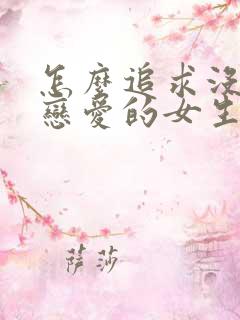 怎麼追求沒
戀愛的女生
萨莎